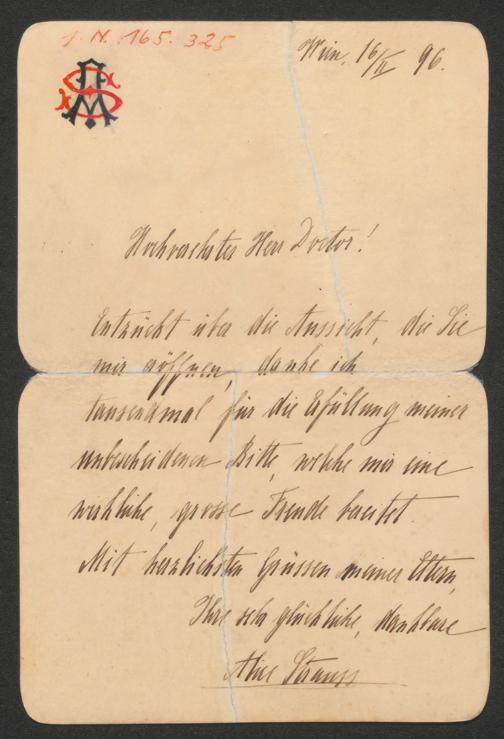 J. N. 165.325
Wien, 16/II 96.
Hochverehrter Herr Doctor!
Entzückt über die Aussicht, die Sie
mir eröffnen, danke ich
tausendmal für die Erfüllung meiner
unbescheidenen Bitte, welche mir eine
wirkliche, grosse Freude bereitet.
Mit herzlichsten Grüssen meiner Eltern,
Ihre sehr glückliche, dankbare
Alice Strauss